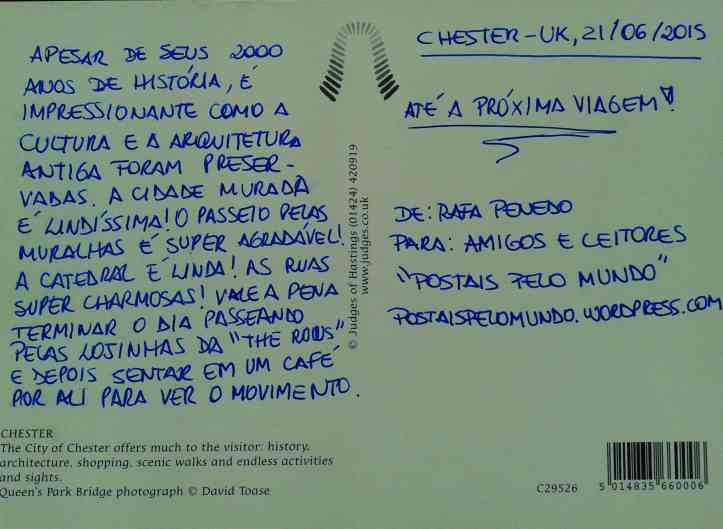 APESAR DE SEUS 2000
ANOS DE HISTÓRIA, É
IMPRESSIONANTE COMO A
CULTURA E A ARQUITETURA
ANTIGA FORAM PRESER-
VADAS. A CIDADE MURADA
É LINDÍSSIMA! O PASSEIO PELAS
MURALHAS É SUPER AGRADÁVEL!
A CATEDRAL É LINDA! AS RUAS
SUPER CHARMOSAS! VALE A PENA
TERMINAR O DIA PASSEANDO
PELAS LOJINHAS DA "THE ROWS"
E DEPOIS SENTAR EM UM CAFÉ
POR ALI PARA VER O MOVIMENTO.
CHESTER
The City of Chester offers much to the visitor: history,
architecture, shopping, scenic walks and endless activities
and sights.
Queen's Park Bridge photograph © David Toase
© Judges of Hastings (01424) 420919
www.judges.co.uk
CHESTER-UK, 21/06/2015
ATÉ A PRÓXIMA VIAGEM!
DE: RAFA PENEDO
PARA: AMIGOS E LEITORES
"POSTAIS PELO MUNDO"
POSTAISPELOMUNDO.WORDPRESS.COM
C29526
5 014835 660006